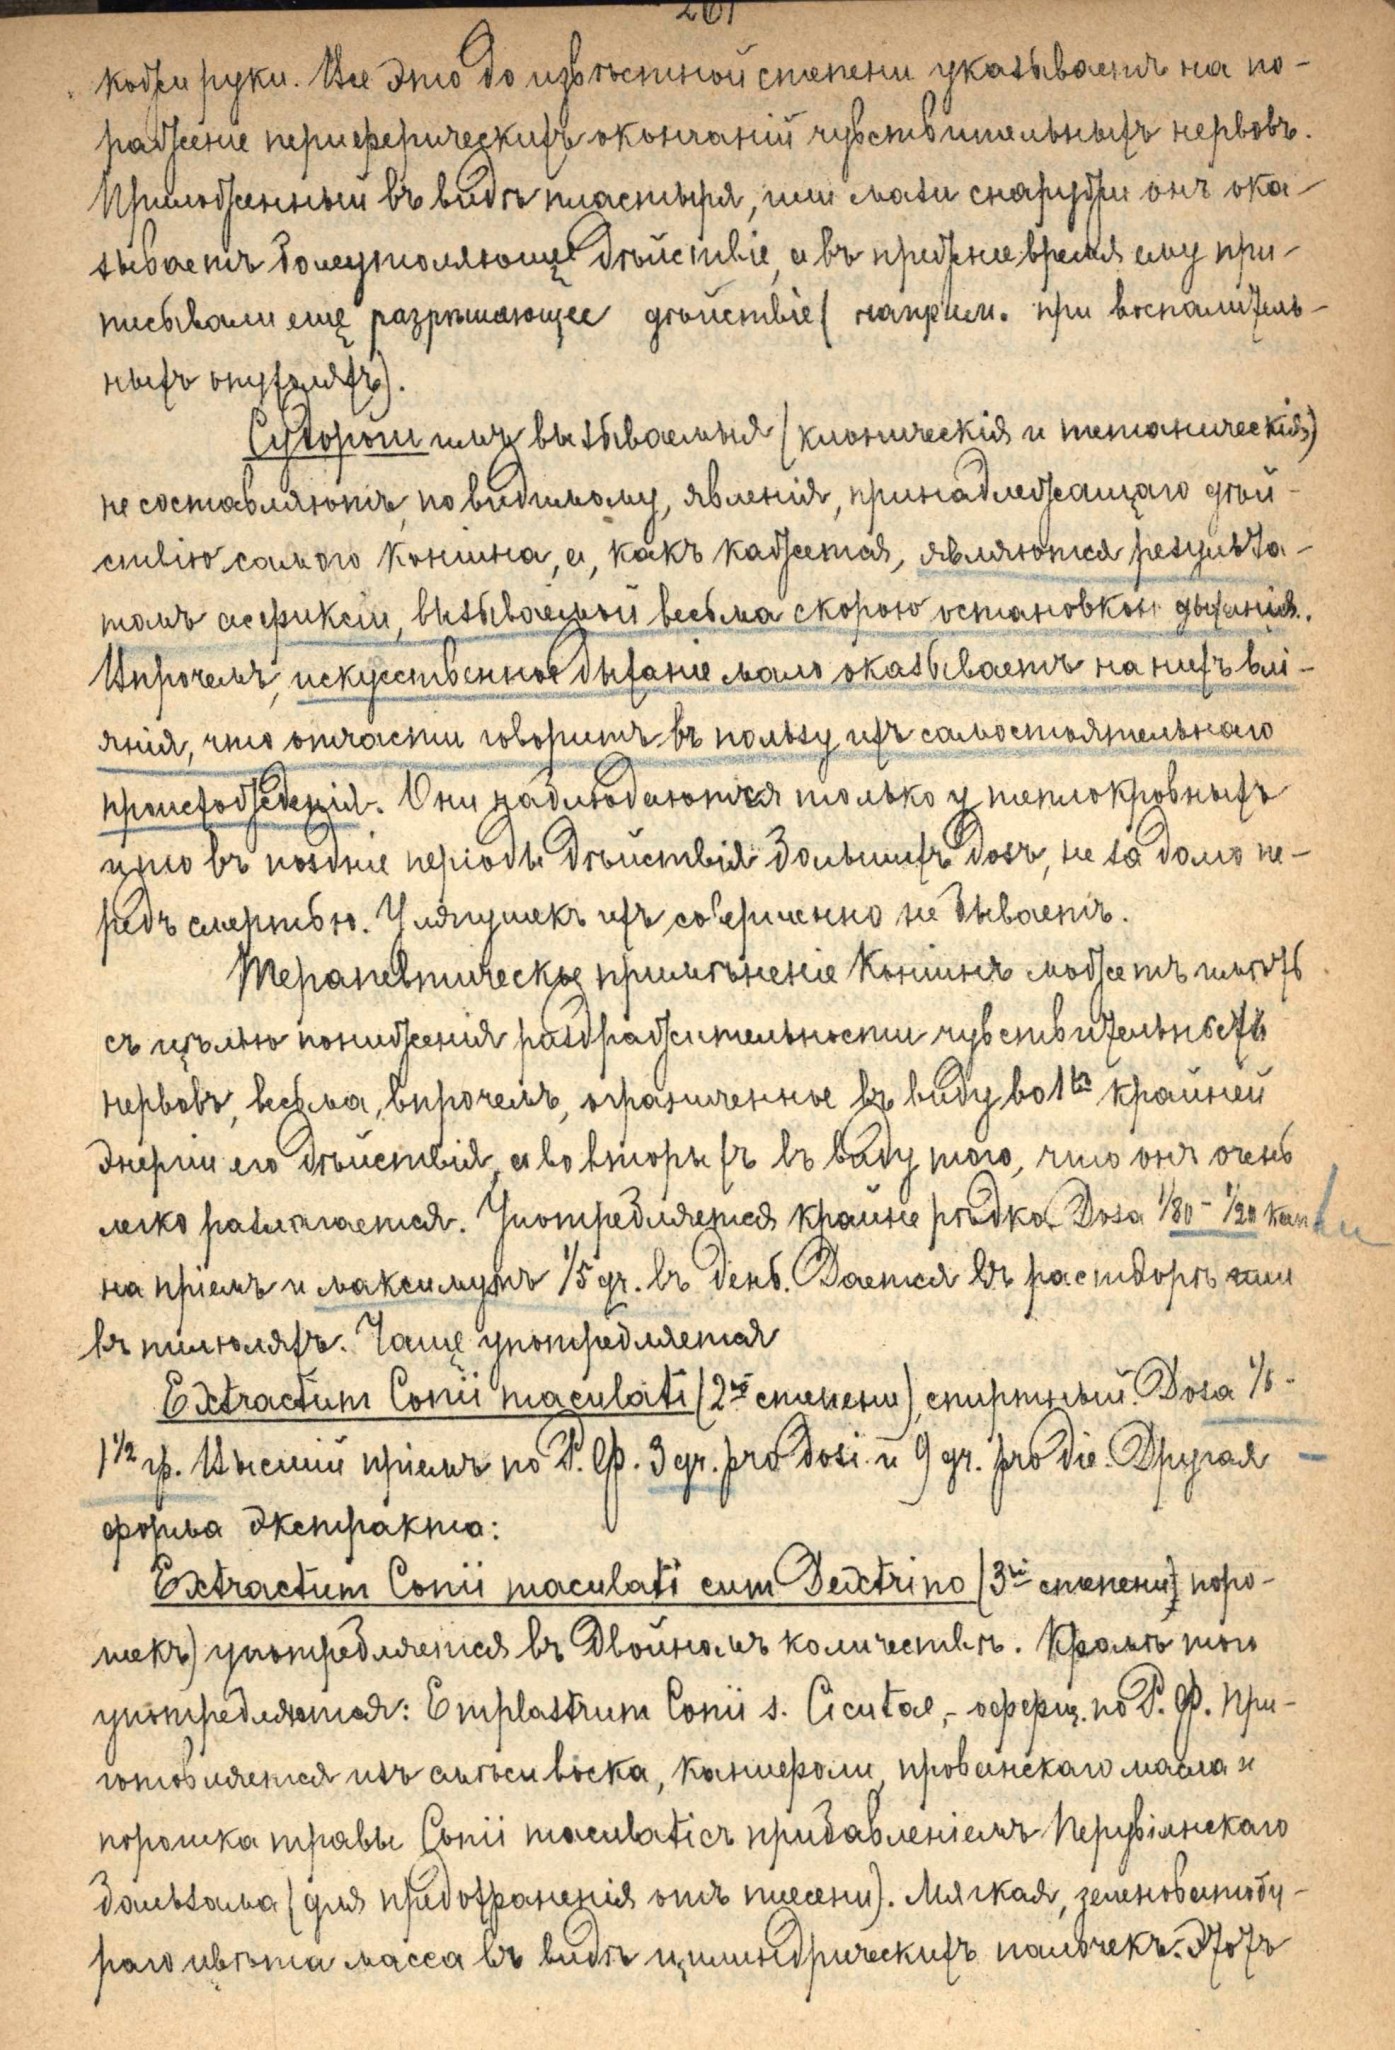 261
кожи руки. Все это до извѣстной степени указываетъ на по-
раженіе периферическихъ окончаній чувствительныхъ нервовъ.
Приложенный въ видѣ пластыря, или мази снаружи онъ ока-
зываетъ болеутоляющее дѣйствіе, а въ прежнее время ему при-
писывали еще разрѣшающее дѣйствіе (наприм. при воспалитель-
ныхъ опухоляхъ).
Судороги имъ вызываемыя (клоническія и тетаническія)
не составляютъ, по видимому, явленія, принадлежащаго дѣй-
ствію самого Коніина, а, какъ кажется, являются результа-
томъ асфиксіи, вызываемой весьма скорою остановкою дыханія.
Впрочемъ, искусственное дыханіе мало оказываетъ на нихъ влі-
янія, что отчасти говоритъ въ пользу ихъ самостоятельнаго
происхожденія. Они наблюдаются только у теплокровныхъ
и то въ поздніе періоды дѣйствія большихъ дозъ, не за долго пе-
редъ смертью. У лягушекъ ихъ совершенно не бываетъ.
Терапевтическое примѣненіе Коніинъ можетъ имѣть
съ цѣлью пониженія раздражительности чувствительныхъ
нервовъ, весьма, впрочемъ, ограниченное въ виду во 1хъ крайней
энергіи его дѣйствія, а во вторыхъ въ виду того, что онъ очень
легко разлагается. Употребляется крайне рѣдко. Dosa 1/80 - 1/20 капли
на пріемъ и максимумъ 1/5 gr. въ день. Дается въ растворѣ или
въ пилюляхъ. Чаще употребляется
Extractum Conii maculati (2й степени), спиртный. Dosa 1/6 -
1 1/2 гр. Высшій пріемъ по Р. Ф. 3 gr. pro dosi и 9 gr. pro die. Другая
форма экстракта:
Extractum Conii maculati cum Dextrino (3й степени, поро-
шекъ) употребляется въ двойномъ количествѣ. Кромѣ того
употребляется: Emplastrum Conii s. Cicutae, - оффиц. по Р. Ф. При-
готовляется изъ смѣси воска, канифоли, прованскаго масла и
порошка травы Conii maculati съ придавленіемъ Перувіанскаго
бальзама (для предохраненія отъ плесени). Мягкая, зеленоватобу-
раго цвѣта масса въ видѣ цилиндрическихъ палочекъ. Этотъ